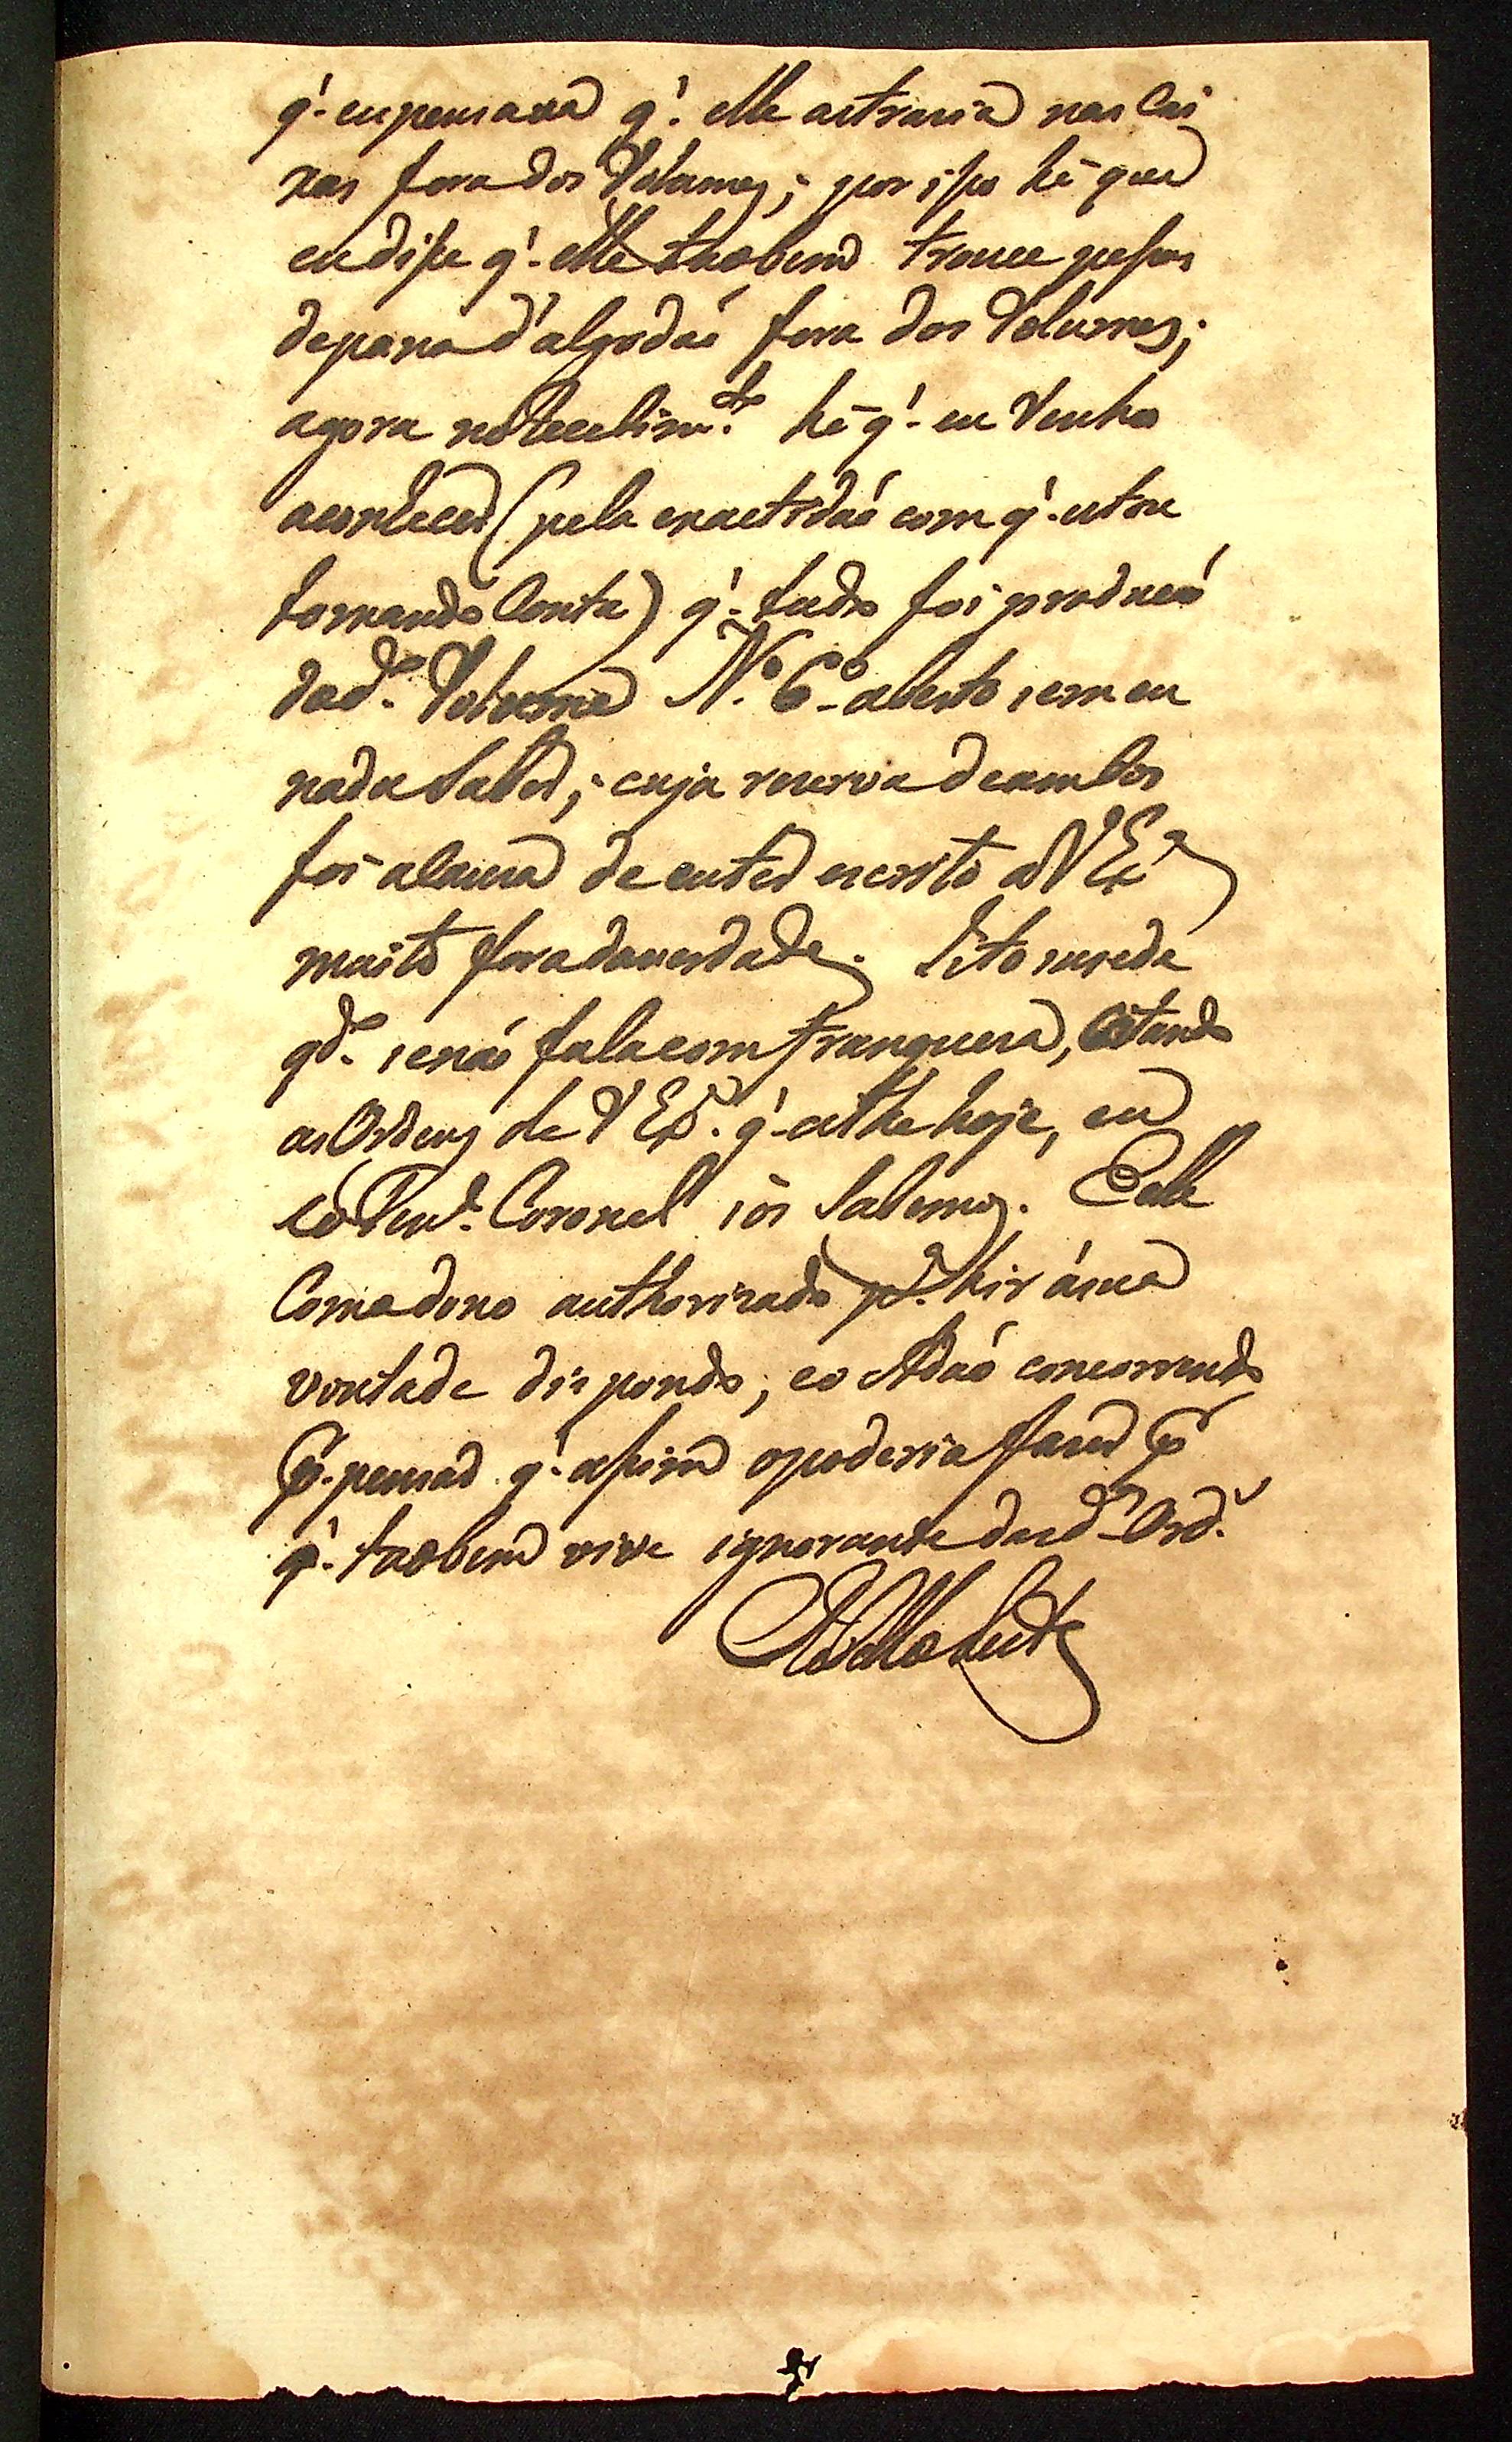 q'. eu pensava q'. elle as traria nas Cai
xas fora dos Volumes; por isso hé que
eu disse q'. elle taobem trouce pessas
de pano d'algodaó fora dos Volumes;
agora no recebim.to hé q'. eu venho
aconhecer (pela exactidaó com q'. estou
tomando Conta) q'. tudo foi producaó
do d.o Volume N.o 6.o aberto sem eu
nada saber; cuja reserva de ambos
foi a cauza de eu ter escrito a V Ex.a
muito fora da verdade. Isto susede
q.do se náo fala com franqueza, Citando
as Ordens de V Ex.a q'. athe hoje, eu
e o Ten.e Coronel só's Sabemos. Elle
Como dono authorizado p.a hir á sua
vontade dispondo; e o Adaó concorrendo
p.r pensar q'. assim o poderia fazer p.r
q'. taobem vive ignorante das d.as Ord.s